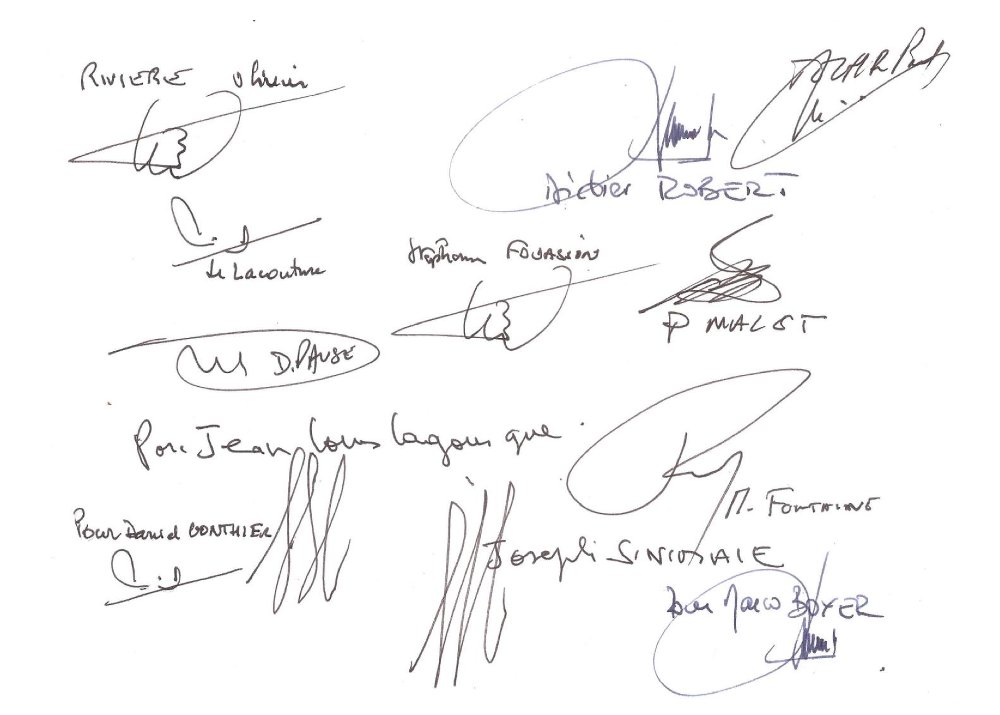 RIVIERE Olivier
AZAR
Didier ROBERT
de Lacouture
Stéphane FOUASSIN
P MALET
D. PAUSE
Pour Jean Louis Lagourgue
M. FONTAINE
Pour Daniel GONTHIER
Joseph SINIMALE
Pour Marco BOYER